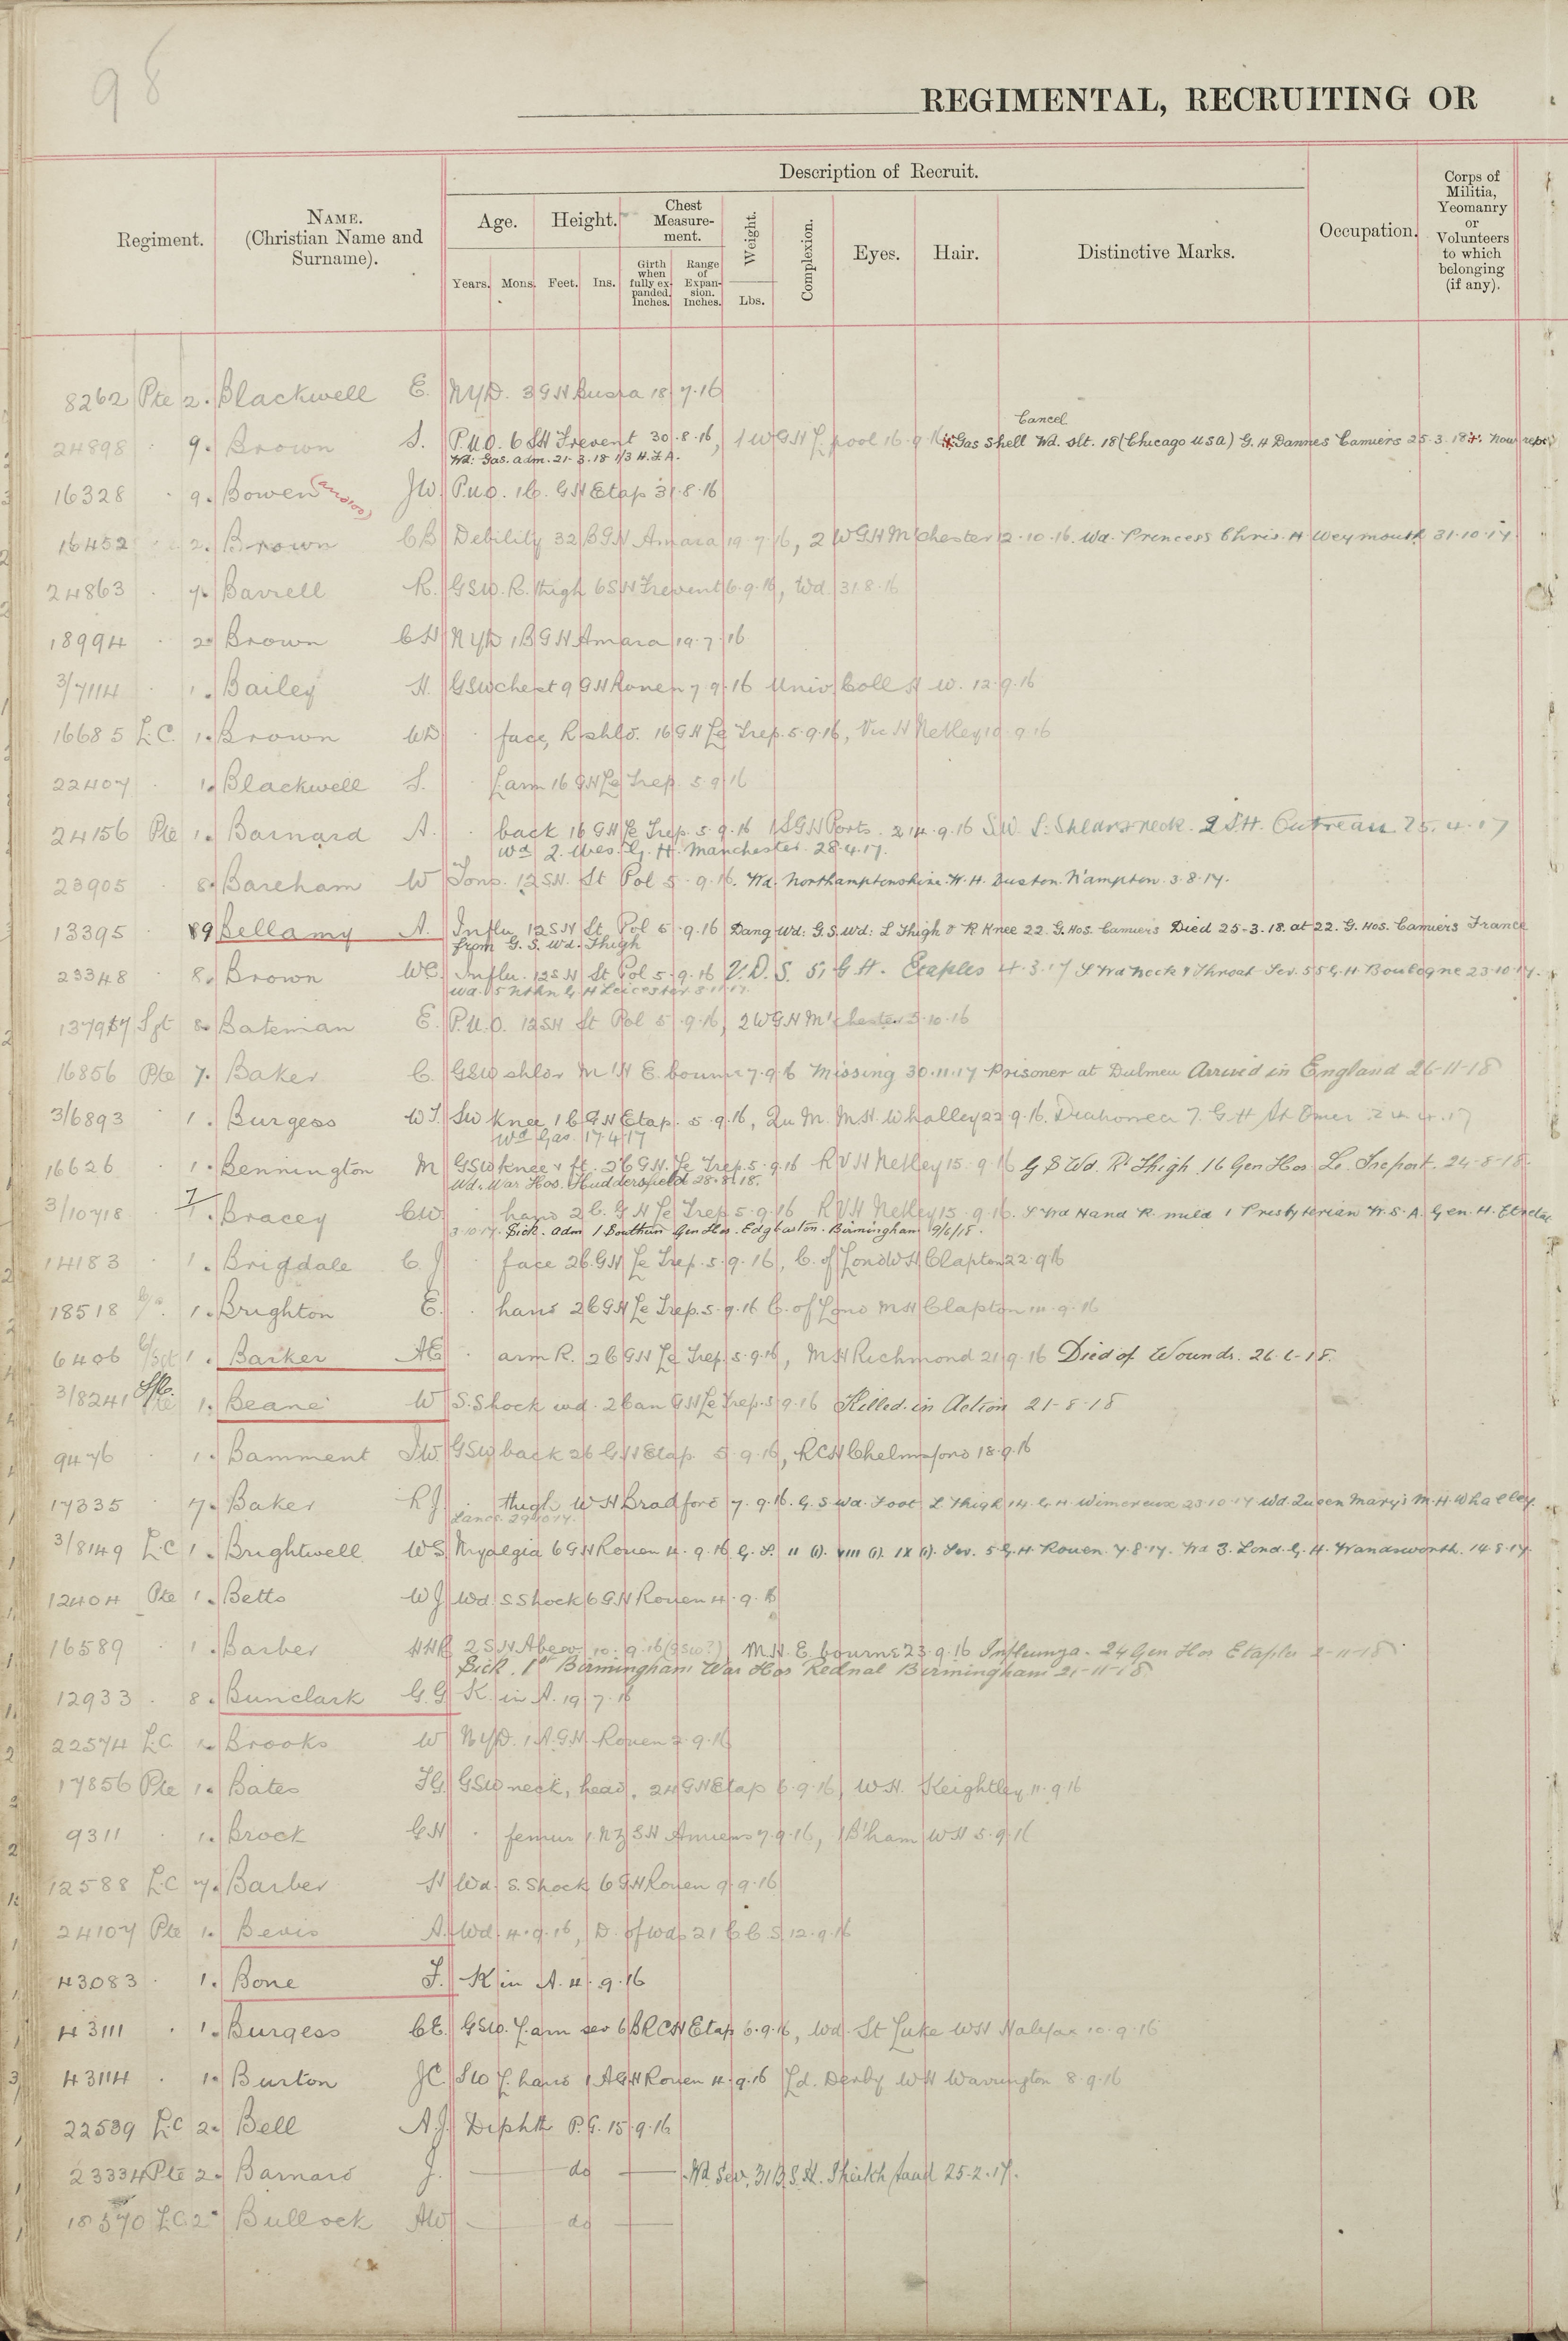 98
REGIMENTAL, RECRUITING OR
Regiment.
NAME.
(Christian Name and
Surname).
Description of Recruit.
Age.
Height.
Chest
Measure-
ment.
Years.
Mons.
Feet.
Ins.
Girth
when
fully ex-
panded.
Inches.
Range
of
Expan-
sion.
Inches.
Weight.
Lbs.
Complexion.
Eyes.
Hair.
Distinctive Marks.
Occupation.
Corps of
Militia,
Yeomanry
or
Volunteers
to which
belonging
(if any).
8262 Pte 2. Blackwell E. NYD. 3 GH Busra 18.7.16
Cancel
24898 . 9. Brown S. P.U.O. 6 SH Frevent 30.8.16, 1 WGH L'pool 16.9.16 Gas Shell Wd. slt. 18 (Chicago USA) G.H Dannes Camiers 25.3.18 Now
Wd: Gas. adm. 21-3-18 1/3 H.F.A.
16328 . 9. Bowen JW. P.U.O. 1C. GH Etap 31.8.16
16452 2. Brown CB Debility 32 BGH Amara 19.7.16, 2 WGH M'chester 12.10.16. Wd. Princess Chris. H Weymouth 31.10.17.
24863 . 7. Barrell R. GSW. R. thigh 6 SH Frevent 6.9.16, Wd. 31.8.16
18994 . 2. Brown CH NYD 1 BGH Amara 19.7.16
3/7114 . 1. Bailey H. GSW chest 9 GH Rouen 7.9.16 Univ. Coll H W. 12.9.16
16685 L.C. 1. Brown WD . face, R. shld. 16 GH Le Trep. 5.9.16, Vic H Netley 10.9.16
22407 . 1. Blackwell S. . L. arm 16 GH Le Trep. 5.9.16
24156 Pte 1. Barnard A. . back 16 GH Le Trep. 5.9.16 1 SGH Ports. 14.9.16 SW. L: Shldr & neck. 2 S.H. Outreau 25.4.17
Wd 2. Wes. G. H. Manchester. 28.4.17.
23905 . 8. Bareham W Tons. 12 SH. St Pol 5.9.16. Wd. Northamptonshire. W.H. Duston. N'ampton. 3.8.17.
13395 . 9 Bellamy A. Influ. 12 SH St Pol 5.9.16 Dang Wd: G.S.Wd: L Thigh & R Knee 22. G.Hos. Camiers Died 25-3.18. at 22. G. Hos. Camiers France
from G.S. Wd. Thigh
23348 . 8. Brown WC. Influ. 12 SH St Pol 5.9.16 V.D.S. 51 G.H. Etaples 4.3.17 S Wd Neck & Throat Sev. 55 G.H Boulogne 23.10.17.
Wd. 5 Nthn G.H Leicester 8.11.17.
Sgt 8. Bateman E. P.U.O. 12 SH St Pol 5.9.16, 2 WGH M'chester 5.10.16
16856 Pte 7. Baker C. GSW shldr M'H E. bourne 7.9.16 Missing 30.11.17 Prisoner at Dulmen Arrived in England 26-11-18
3/6893 . 1. Burgess WT. SW knee 1 C GH Etap. 5.9.16, Qu M. MH. Whalley 22.9.16. Diahorrea 7. G.H St Omer
Wd Gas. 17.4.17
16626 . 1. Bennington M GSW knee & ft. 26 GH. Le Trep. 5.9.16 RVH Netley 15.9.16 G S Wd. R. Thigh 16 Gen Hos Le. Treport. 24-8-18.
Wd. War Hos. Huddersfield 28.8.18.
3/10718 7 Bracey CW . hand 2 C. GH Le Trep 5.9.16 RVH Netley 15.9.16. S Wd Hand R. mild 1 Presbyterian W. S. A. Gen. H. Etretat
3.10.17. Sick. adm 1 Southern Gen Hos. Edgbaston. Birmingham 9/6/18.
14183 . 1. Brigdale C. J . face 26 GH Le Trep. 5.9.16, C. of Lond WH Clapton 22.9.16
18518 1. Brighton E. . hand 2 C GH Le Trep. 5.9.16 C. of Lond MH Clapton 14.9.16
6406 1. Barker AE . arm R. 2 C GH Le Trep. 5.9.16, MH Richmond 21.9.16 Died of Wounds. 26.6-18.
3/8241 1. Beane W S. Shock wd. 2 Can GH Le Trep. 5.9.16 Killed. in Action 21-8-18
9476 . 1. Bamment GSW back 26 GH Etap. 5.9.16, RCH Chelmsford 18.9.16
17335 . 7. Baker RJ. . thigh WH Bradford 7.9.16. G.S Wd. Foot L Thigh 14 G.H. Wimereux 23.10.17 Wd. Queen Mary's M.H. Whalley.
Lancs. 29.10.17.
3/8149 L.C 1. Brightwell WS Myalgia 6 GH Rouen 4.9.16 G.S. II (1). VIII (1). IX (1). Sev. 5 G.H. Rouen. 7.8.17. Wd 3. Lond. G.H. Wandsworth. 14.8.17.
12404 Pte 1. Betts WJ Wd. S. Shock 6 GH Rouen 4.9.16
16589 . 1. Barber HHR 2 SH Abev 10.9.16 (GSW?) M.H. E. bourne 23.9.16 Influenza. 24 Gen Hos Etaples 2-11-18.
Sick. 1st Birmingham War Hos Rednal Birmingham 21-11-18
12933 . 8. Bunclark G.G K. in A. 19.7.16
22574 L.C. 1. Brooks W NYD. 1 A.G.H. Rouen 2.9.16
17856 Pte 1. Bates GSW neck, head. 24 GH Etap 6.9.16, WH. Keightley 11.9.16
9311 . 1. Brock GH . femur 1 NZ SH Amiens 7.9.16, 1 B'ham WH 5.9.16
12588 L.C 7. Barber H Wd. S. Shock 6 GH Rouen 9.9.16
24107 Pte 1. Bevis A. Wd. 4.9.16, D. of wds 21 CCS 12.9.16
43083 . 1. Bone F. K in A. 4.9.16
43111 . 1. Burgess CE. GSW. L. arm sev 6 BRCH Etap 6.9.16, Wd. St Luke WH Halifax 10.9.16
43114 . 1. Burton JC. SW L. hand 1 AGH Rouen 4.9.16 Ld. Derby WH Warrington 8.9.16
22539 L.C 2. Bell A.J. Diphth P.G. 15.9.16
23334 Pte 2. Barnard J. — do — Wd Sev. 31 B.S.H. Sheikh Saad 25-2.17.
L.C 2. Bullock AW — do —